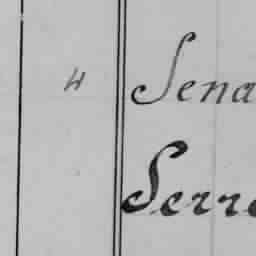 4 Sena
Serre